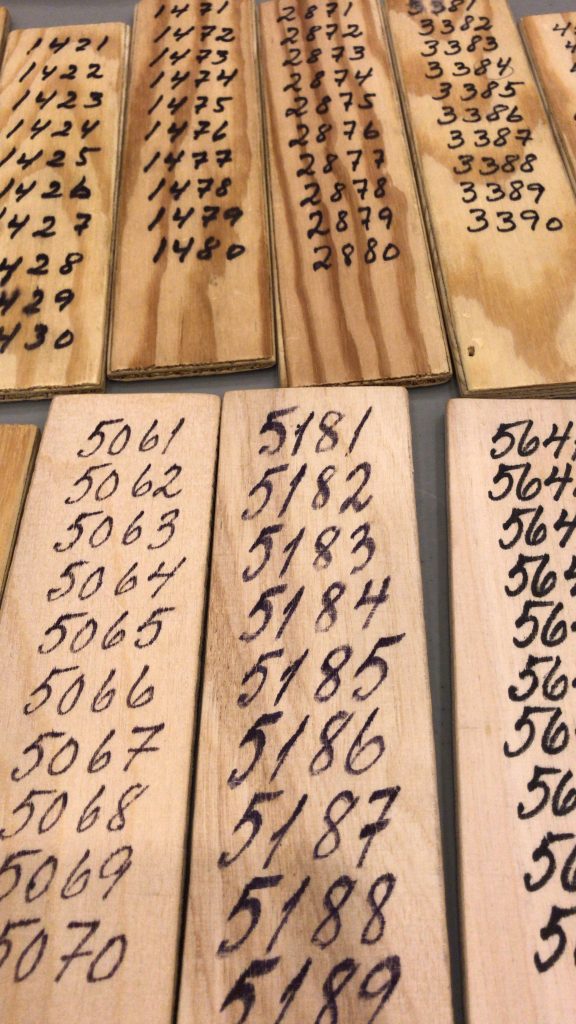 1421
1422
1423
1424
1425
1426
427
428
429
430
1471
1472
1473
1474
1475
1476
1477
1478
1479
1480
2871
2872
2873
2874
2875
2876
2877
2878
2879
2880
3381
3382
3383
3384
3385
3386
3387
3388
3389
3390
5061
5062
5063
5064
5065
5066
5067
5068
5069
5070
5181
5182
5183
5184
5185
5186
5187
5188
5189
564
564
564
564
564
564
564
56
56
5